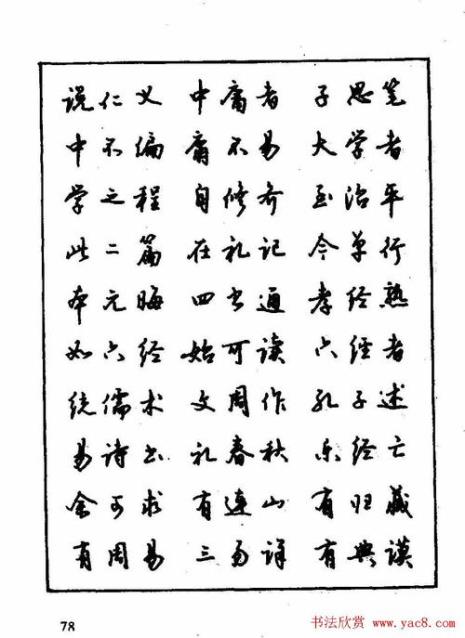 说仁义 中庸者 子思笔
中不编 庸不易 大学者
学之程 自修齐 至治平
此二篇 在礼记 今单行
本元晦 四书通 孝经熟
如六经 始可读 六经者
统儒术 文周作 孔子述
易诗书 礼春秋 乐经亡
余可求 有连山 有归藏
有周易 三易详 有典谟
78
书法欣赏 www.yac8.com